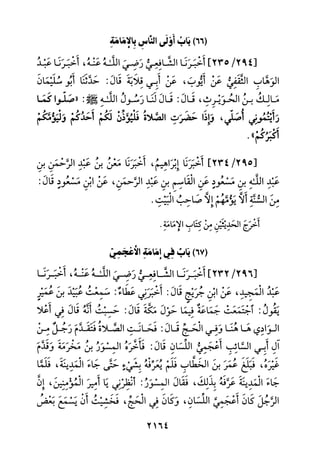 (٦٦) بَابُ أَوْلَى النَّاسِ بِالإِمَامَةِ
[٢٩٤/ ٢٣٥] أَخْبَرَنَا الشَّافِعِيُّ رَضِيَ اللَّهُ عَنْهُ، أَخْبَرَنَا عَبْدُ
الْوَهَّابِ الثَّقَفِيُّ، عَنْ أَيُّوبَ، عَنْ أَبِي قِلَابَةَ قَالَ: حَدَّثَنَا أَبُو سُلَيْمَانَ
مَالِكُ بْنُ الْحُوَيْرِثِ، قَالَ: قَالَ لَنَا رَسُولُ اللَّهِ ﷺ: «صَلُّوا كَمَا
رَأَيْتُمُونِي أُصَلِّي، وَإِذَا حَضَرَتِ الصَّلاةُ فَلْيُؤَذِّنْ لَكُمْ أَحَدُكُمْ وَلْيَؤُمَّكُمْ
أَكْبَرُكُمْ».
[٢٩٥/ ٢٣٤] أَخْبَرَنَا إِبْرَاهِيمُ، أَخْبَرَنَا مَعْنُ بْنُ عَبْدِ الرَّحْمَنِ بنِ
عَبْدِ اللَّهِ بنِ مَسْعُودٍ عَنِ الْقَاسِمِ بْنِ عَبْدِ الرَّحْمَنِ، عَنِ ابْنِ مَسْعُودٍ قَالَ:
مِنَ السُّنَّةِ أَلَّا يَؤُمَّهُمْ إِلَّا صَاحِبُ الْبَيْتِ.
أَخْرَجَ الْحَدِيثَيْنِ مِنْ كِتَابِ الإِمَامَةِ.
(٦٧) بَابٌ فِي إِمَامَةِ الْأَعْجَمِيِّ
[٢٩٦/ ٢٣٢] أَخْبَرَنَا الشَّافِعِيُّ رَضِيَ اللَّهُ عَنْهُ، أَخْبَرَنَا
عَبْدُ الْمَجِيدِ، عَنِ ابْنِ جُرَيْجٍ قَالَ: أَخْبَرَنِي عَطَاءٌ: سَمِعْتُ عُبَيْدَ بنَ عُمَيْرٍ
يَقُولُ: اجْتَمَعَتْ جَمَاعَةٌ فِيمَا حَوْلَ مَكَّةَ قَالَ: حَسِبْتُ أَنَّهُ قَالَ فِي أَعْلَا
الْوَادِي هَا هُنَا وَفِي الْحَجِّ قَالَ: فَحَانَتِ الصَّلاةُ فَتَقَدَّمَ رَجُلٌ مِنْ
آلِ أَبِي السَّائِبِ أَعْجَمِيُّ اللِّسَانِ قَالَ: فَأَخَّرَهُ الْمِسْوَرُ بْنُ مَخْرَمَةَ وَقَدَّمَ
غَيْرَهُ، فَبَلَغَ عُمَرَ بْنَ الْخَطَّابِ فَلَمْ يُعَرِّفْهُ بِشَيْءٍ حَتَّى جَاءَ الْمَدِينَةَ، فَلَمَّا
جَاءَ الْمَدِينَةَ عَرَّفَهُ بِذَلِكَ، فَقَالَ الْمِسْوَرُ: أَنْظِرْنِي يَا أَمِيرَ الْمُؤْمِنِينَ، إِنَّ
الرَّجُلَ كَانَ أَعْجَمِيَّ اللِّسَانِ، وَكَانَ فِي الْحَجِّ، فَخَشِيتُ أَنْ يَسْمَعَ بَعْضُ
٢١٦٤